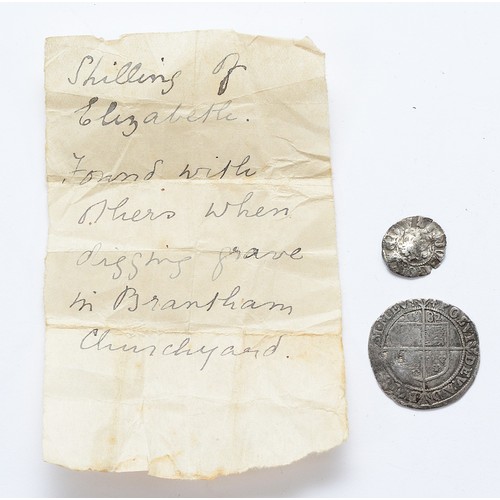 Shilling of
Elizabeth.
Found with
others when
digging grave
in Brantham
Churchyard.